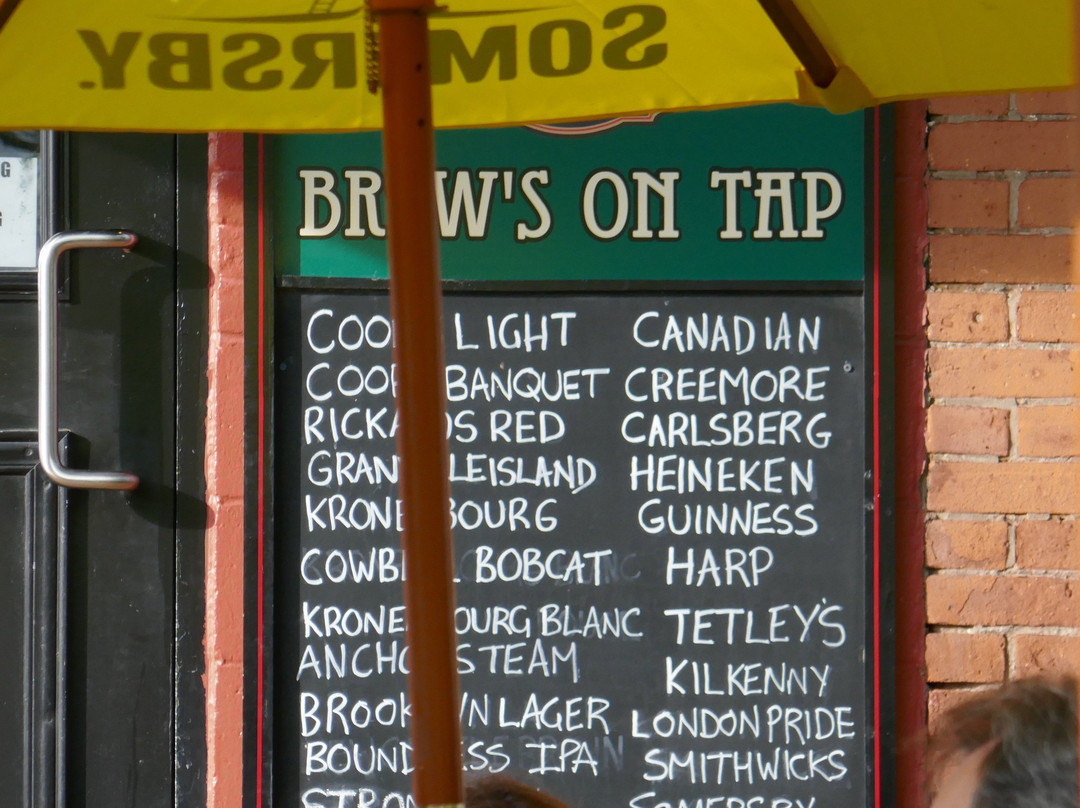 SOMERSBY.
BREW'S ON TAP
COORS LIGHT
COORS BANQUET
RICKARDS RED
GRANVILLE ISLAND
KRONENBOURG
COWBELL BOBCAT
KRONENBOURG BLANC
ANCHOR STEAM
BROOKLYN LAGER
BOUNDLESS IPA
STRON
CANADIAN
CREEMORE
CARLSBERG
HEINEKEN
GUINNESS
HARP
TETLEY'S
KILKENNY
LONDON PRIDE
SMITHWICKS
SOMERSBY